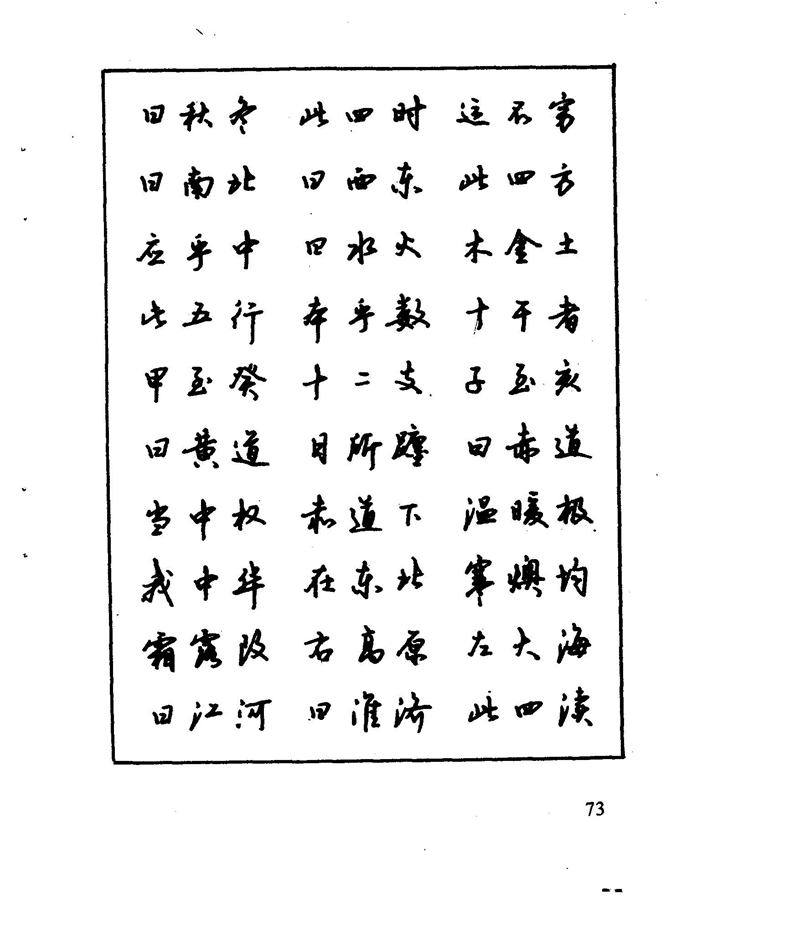 曰秋冬 此四时 运不穷
曰南北 曰西东 此四方
应乎中 曰水火 木金土
此五行 本乎数 十干者
甲至癸 十二支 子至亥
曰黄道 日所躔 曰赤道
当中权 赤道下 温暖极
我中华 在东北 寒燠均
霜露改 右高原 左大海
曰江河 曰淮济 此四渎
73